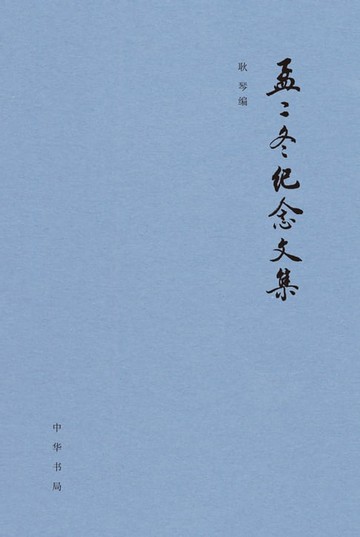 孟二冬纪念文集
耿琴编
中华书局